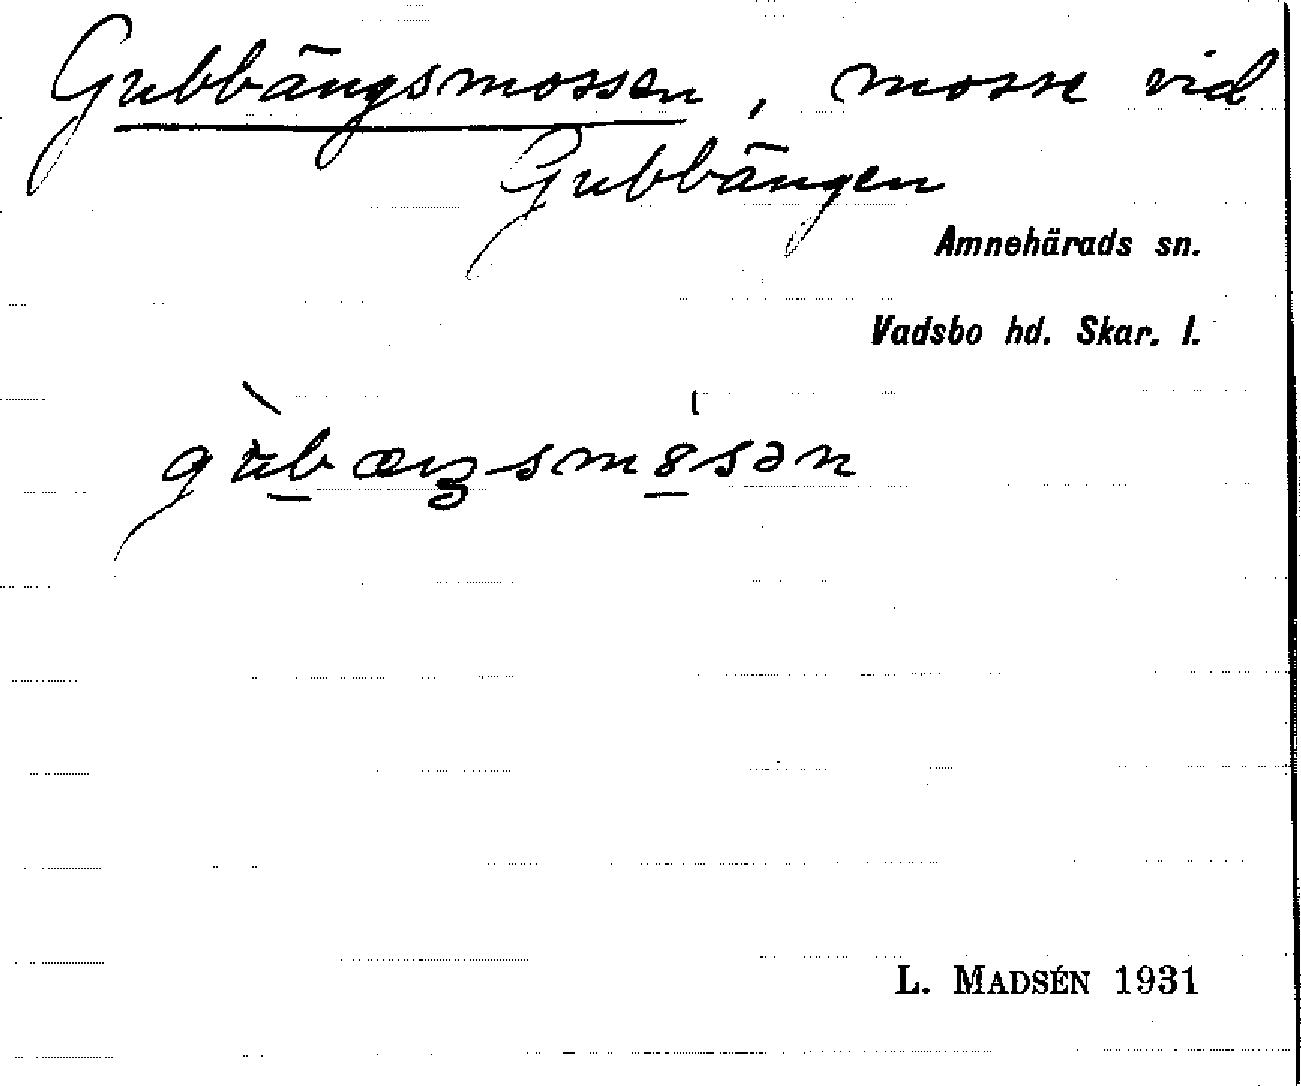 Gubbängsmossen, mosse vid
Gubbängen
Amnehärads sn.
Vadsbo hd. Skar. l.
L. MADSÉN 1931